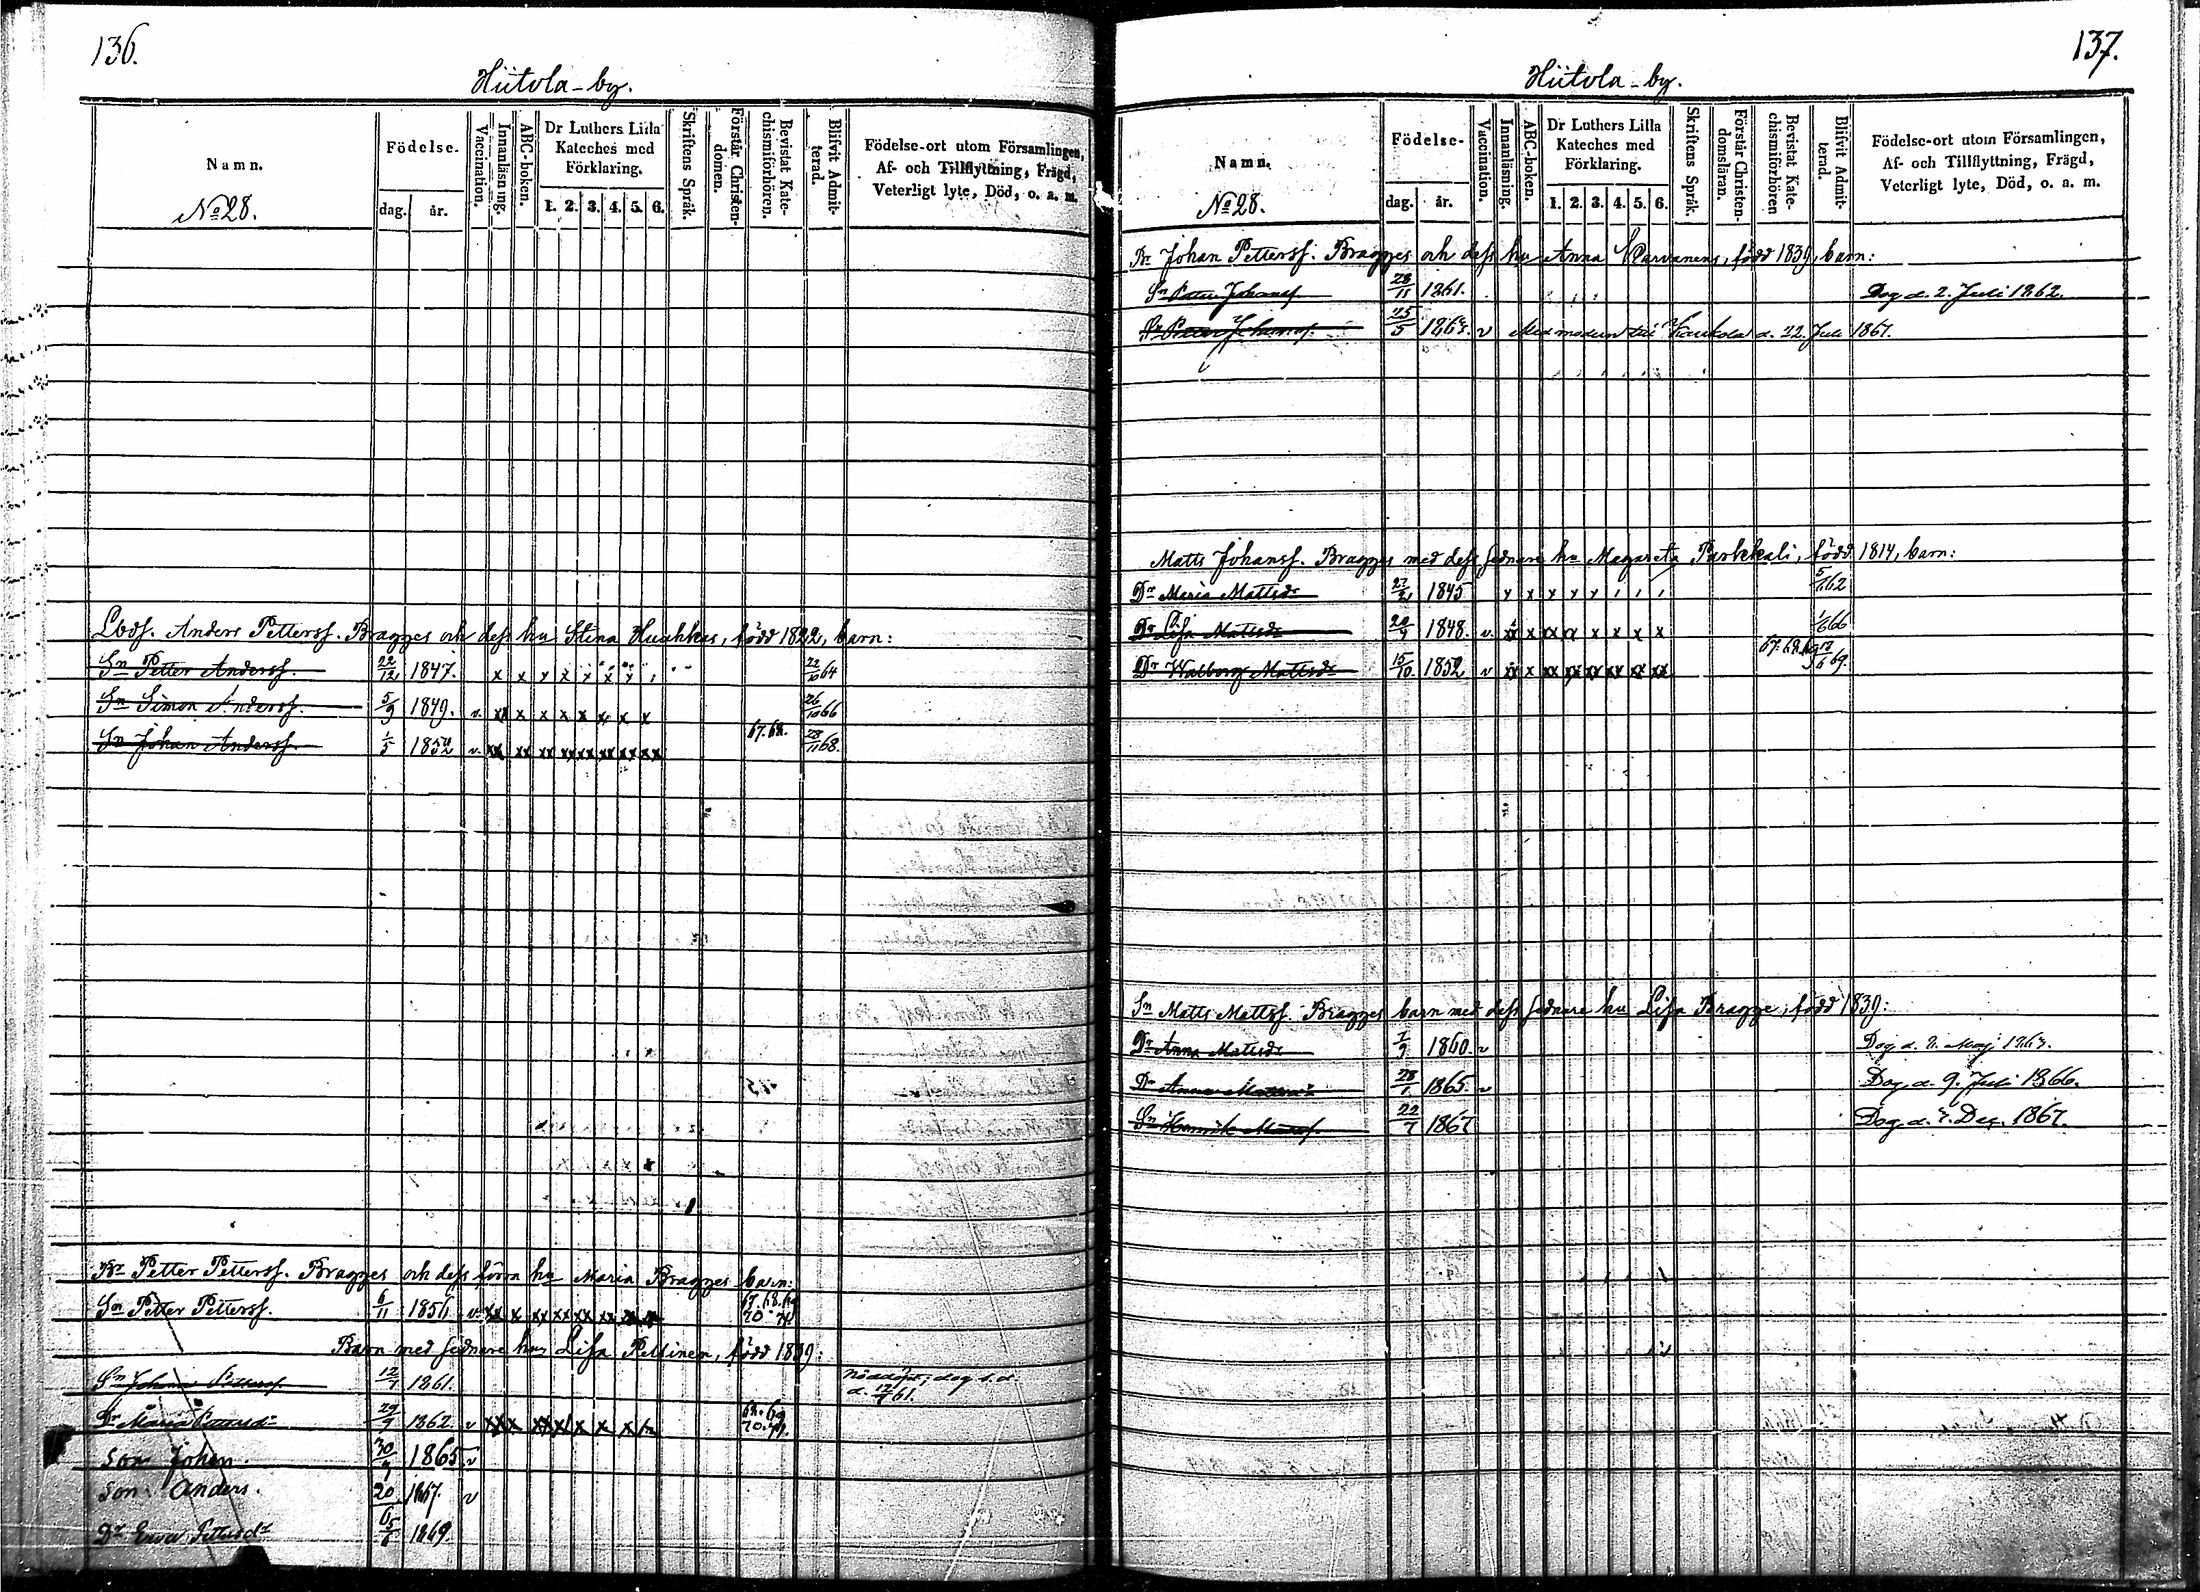 136.
Hiitola-by.
Namn.
No 28.
Födelse.
dag.
år.
Vaccination.
Innanläsning.
ABC-boken.
Dr Luthers Lilla
Kateches med
Förklaring.
1. 2. 3. 4. 5. 6.
Skriftens Språk.
Förstår Christen-
domen.
Bevistat Kate-
chismiförhören.
Blifvit Admit-
terad.
Födelse-ort utom Församlingen,
Af- och Tillflyttning, Frägd,
Veterligt lyte, Död, o. a. m.
Anders Petterss. Bragges och dess hu Stina Huuhkas, född 1822, barn:
Sn Petter Anderss. 22/12 1847. x x x x x x x 22/10 64
Sn Simon Anderss. 5/9 1849. v. xx x x x x x x x 26/10 66
Sn Johan Anderss. 1/5 1852 v. xx xx xx xx xx xx xx xx 67.68. 28/11 68.
Br Petter Petterss. Bragges och dess förra hu Maria Bragges barn:
Sn Petter Petterss. 6/11 1856 v xx x xx xx xx xx xx xx 67.68.69 70
Barn med sednare hu Lisa Peltinen, född 1839:
Sn Johan Petterss. 12/7 1861. nöddöpt, dog s.d.
d. 12/7 61.
Dr Maria Pettersdr 29/9 1862. v 68.69
70.
Son Johan 30 1865 v
Son Anders. 20 1867. v
Dr Eva Pettersdr 1869.
137.
Hiitola-by.
Namn.
No 28.
Födelse-
dag.
år.
Vaccination.
Innanläsning.
ABC-boken.
Dr Luthers Lilla
Kateches med
Förklaring.
1. 2. 3. 4. 5. 6.
Skriftens Språk.
Förstår Christen-
domsläran.
Bevistat Kate-
chismiförhören
Blifvit Admit-
terad.
Födelse-ort utom Församlingen,
Af- och Tillflyttning, Frägd,
Veterligt lyte, Död, o. a. m.
Br Johan Petterss. Bragges och dess hu Anna Parvanens, född 1839, barn:
Sn Petter Johanss. 28/11 1861. Dog d. 2. Juli 1862.
Sn Petter Johanss. 25/5 v Med modern till Kaukola d. 22 Juli 1867.
Matts Johanss. Bragges med dess sednare hu Magareta Parkkali, född 1814, barn:
Dr Maria Mattsdr 1845 x x x x x 62
Dr Lisa Mattsdr 20/4 1848. v. xx x xx x x x x x 66
Dr Walborg Mattsdr 15/10 1852 v xx x xx xx xx xx xx xx 67.68.69 69.
Sn Matts Mattss. Bragges barn med dess sednare hu Lisa Bragge, född 1839:
Dr Anna Mattsdr 1860. v Dog d. Maj
Dr Anna Mattsdr 28/1 1865. v Dog d. 9. Juli 1866.
Sn Henrik Mattss. 22/7 1867 Dog d. Dec. 1867.